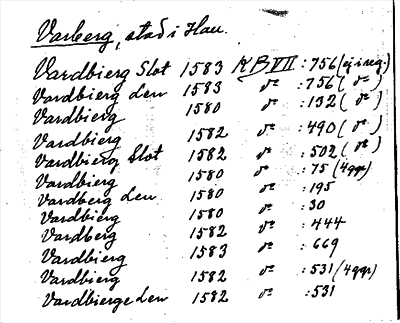 Varberg, stad i Hall.
Vardbierg Slot 1583 KB VII : 756 (ej i reg.)
Vardbierg Len 1583 d:o : 756 ( d:o )
Vardbierg 1580 d:o : 132 ( d:o )
Vardbierg 1582 d:o : 490 ( d:o )
Vardbierg Slot 1582 d:o : 502 ( d:o )
Vardbierg 1580 d:o : 75 (4 ggr)
Vardberg Len 1580 d:o : 195
Vardbierg 1580 d:o : 30
Vardberg 1582 d:o : 444
Vardbierg 1583 d:o : 669
Vardbierg 1582 d:o : 531 (4 ggr)
Vardbierge Len 1582 d:o : 531